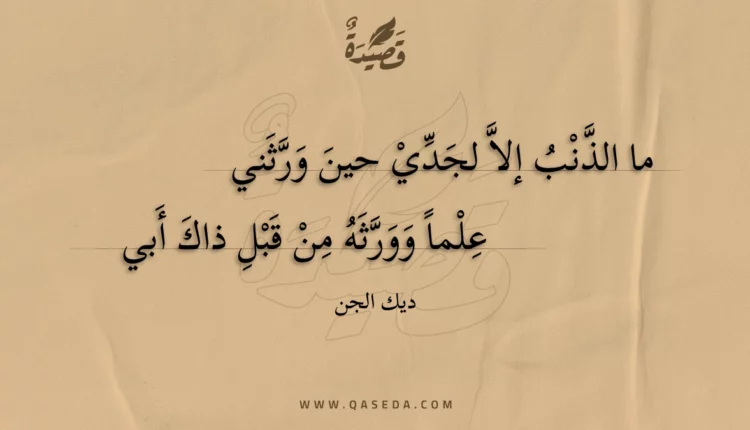 قَصِيدَةٌ
ما الذَّنْبُ إلاَّ لجَدِّيْ حينَ وَرَّثَني
عِلْماً وَوَرَّثَهُ مِنْ قَبْلِ ذاكَ أَبي
ديك الجن
WWW.QASEDA.COM